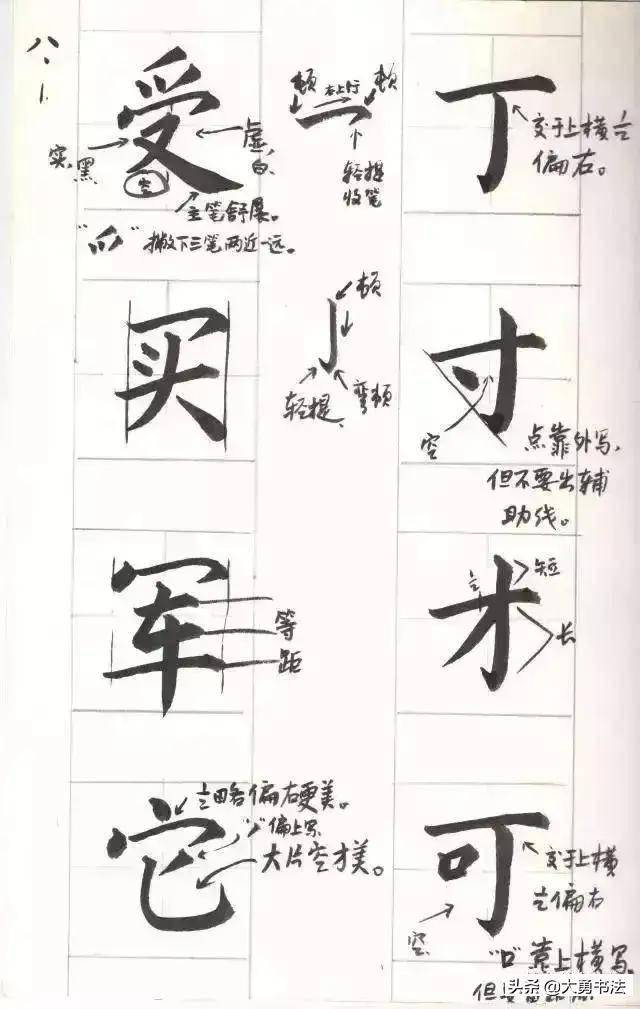 八.1
受
实,黑
虚,白
空
主笔舒展。
“爫”撇下三笔两近一远。
顿
右上行
顿
轻提
收笔
丁
交于上横
偏右。
买
顿
轻提
弯顿
寸
空
点靠外写,
但不要出辅
助线。
军
等
距
才
短
长
它
略偏右更美。
偏上写
大片空才美。
可
交于上横
偏右
空
“口”靠上横写。
头条@大勇书法